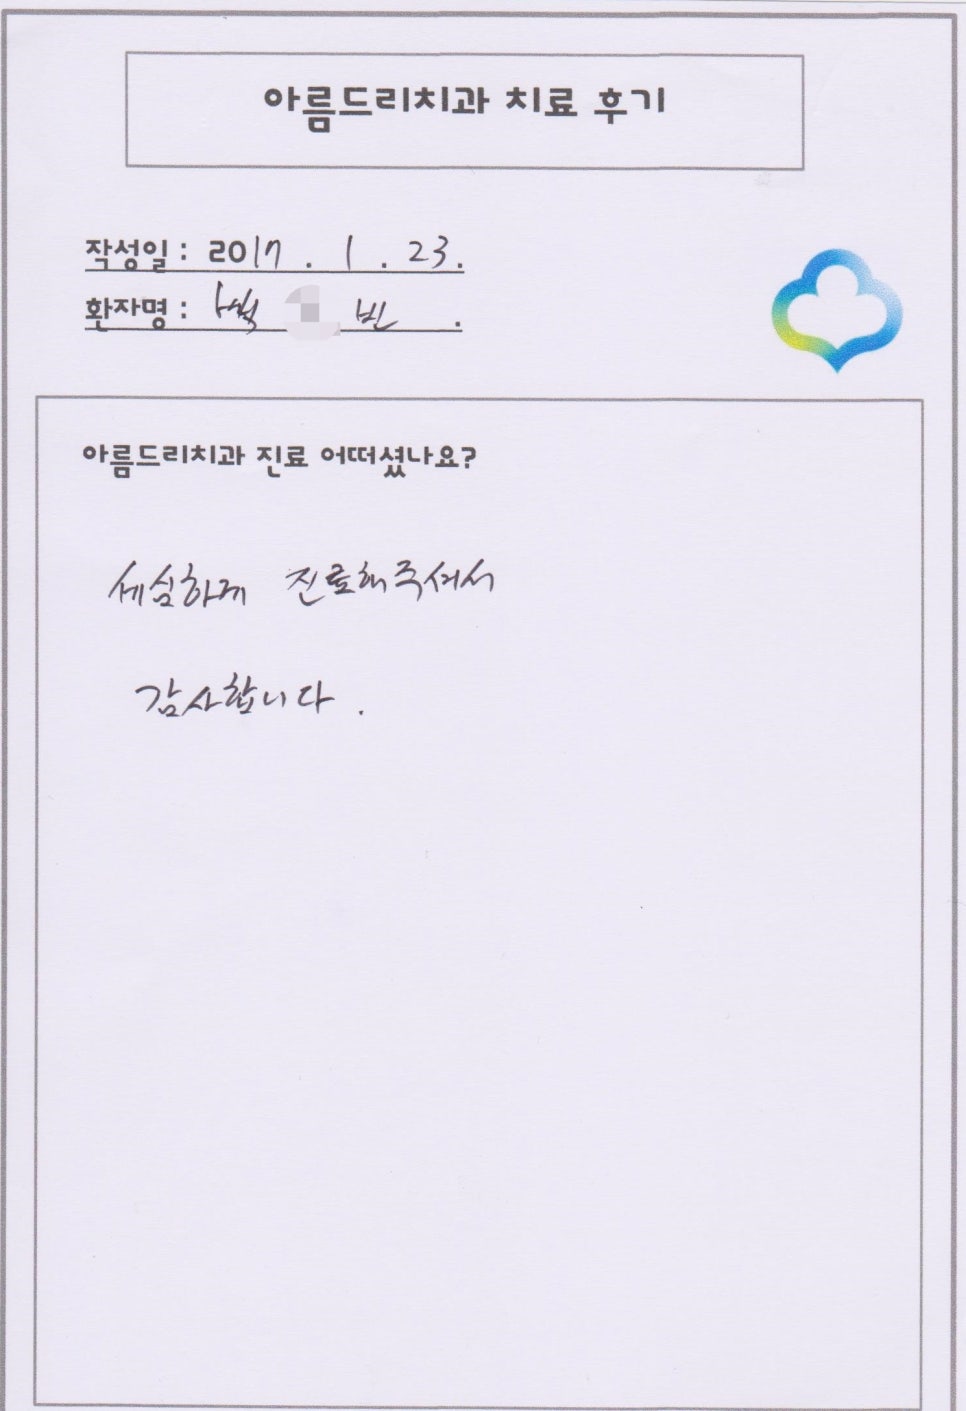 아름드리치과 치료 후기
작성일 : 2017 . 1 . 23.
환자명 : 백 빈 .
아름드리치과 진료 어떠셨나요?
세심하게 진료해주셔서
감사합니다 .